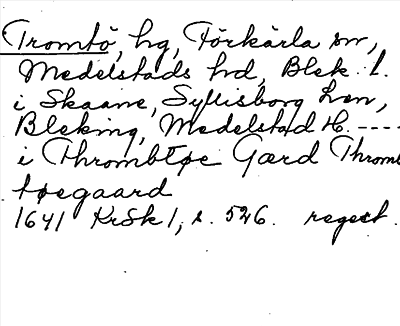 Tromtö, hg, Förkärla sn,
Medelstads hd, Blek. l.
i Skaane, Syllisborg Læn,
Bleking, Medelstad H. ----
i Thrombtøe Gærd Thromb
tøegaard
1641 KrSk 1, s. 526. regest.